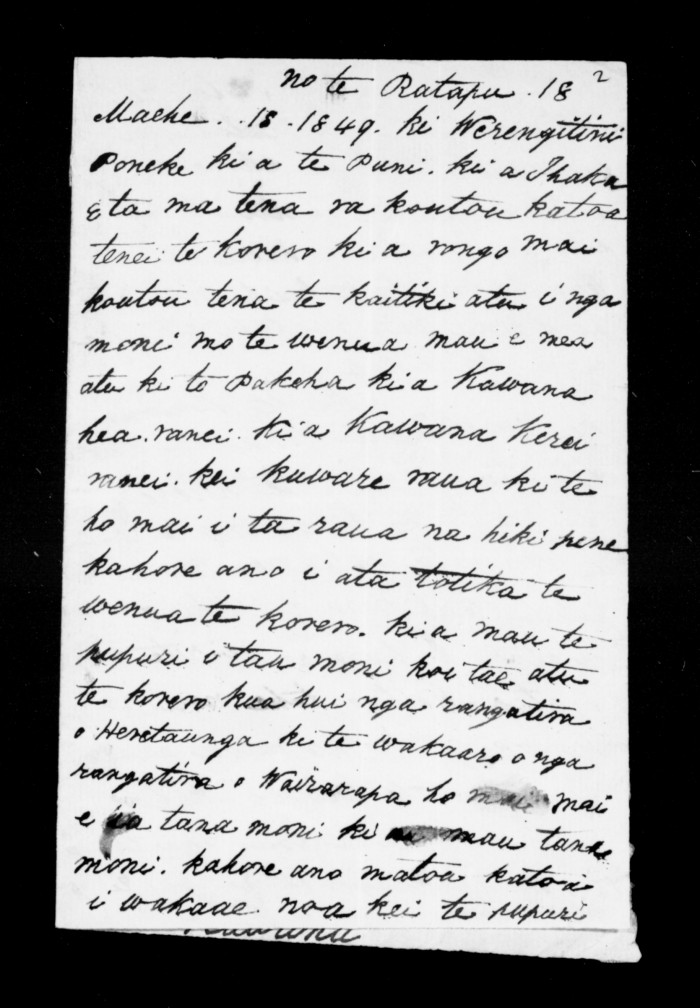 2
no te Ratapu . 18
Maehe . . 18 . 1849 . ki Werengitini
Poneke ki a te Puni . ki a Ihaka
E ta ma tena ra koutou katoa
tenei te korero ki a rongo mai
koutou tena te kaitiki atu i nga
moni mo te wenua mau e mea
atu ki to Pakeha ki a Kawana
hea . ranei . ki a Kawana Kerei
ranei . kei kuware raua ki te
ho mai i ta raua na hiki pene
kahore ano i ata totika te
wenua te korero . ki a mau te
pupuri i tau moni koi tae atu
te korero kua hui nga rangatira
o Heretaunga ki te wakaaro o nga
rangatira o Wairarapa ho mai
e ia tana moni ki mau tana
moni . kahore ano matou katoa
i wakaae noa kei te pupuri